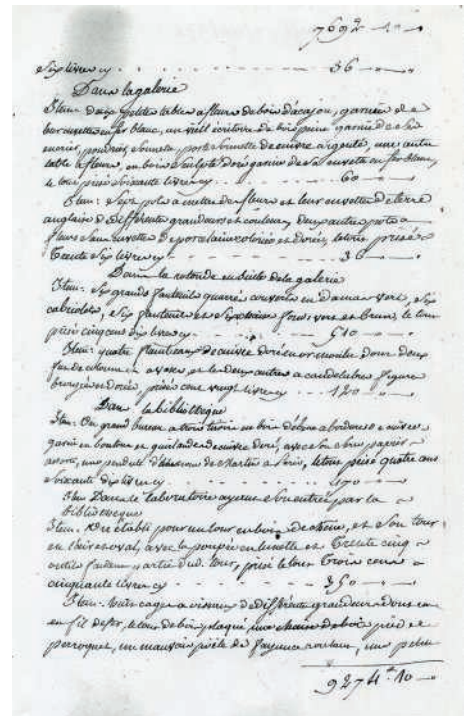 7692 - 10 -
Six livres cy - - - - - 36 -
Dans la galerie
Item: deux petites tables a fleurs de bois d'acajou, garnies de
leur cuvettes en fer blanc, un vieil ecritoire de bois peint garnie de son
encrier, poudrier, sonnette, porte sonnette de cuivre argenté, une autre
table a fleurs, en bois sculpté doré garnie de sa cuvette en fer blanc,
le tout prisé soixante livres cy - - - - 60 -
Item: Sept pots a mettre des fleurs et leur cuvettes de terre
anglaise de différentes grandeurs et couleurs, deux autres pots a
fleurs sans cuvettes de porcelaine coloriée et dorée, le tout prisé
Trente Six livres cy - - - - 36 -
Dans la rotonde en suite de la galerie
Item: Six grands fauteuils quarré couverts en damas vert, Six
cabriolets, Six fauteuils et Six chaises fond vert et brun, le tout
prisé cinq cens dix livres cy - - - 510 -
Item: quatre flambeaux de cuivre doré en or moulu dont deux
fut de colonne et les deux autres a candelabre figure
bronzée et dorée, prisés cent vingt livres cy - - - 120 -
Dans la bibliotheque
Item: Un grand bureau a en bois d'ébène a bordures de cuivre
garni en et guirlandes de cuivre doré, avec son serre papiers
assorti, une pendule de Martin a Paris, le tout prisé quatre cens
soixante dix livres cy - - - 470 -
Item Dans le laboratoire ayant son entrée par la
bibliotheque
Item: Un établi pour un tour en bois de chêne, et Son tour
en l'air et oval, avec la poupée en lunette et Trente cinq
outils faisant partie dud. tour, prisé le tout Trois cens
cinquante livres cy - - - - - 350 -
Item: huit cages a oiseaux de différentes grandeurs dont
en fil de fer, le tout de bois plaqué, une de bois pied de
perroquet, un mauvais poële de fayence roulant, une petite
9274 # 10 -